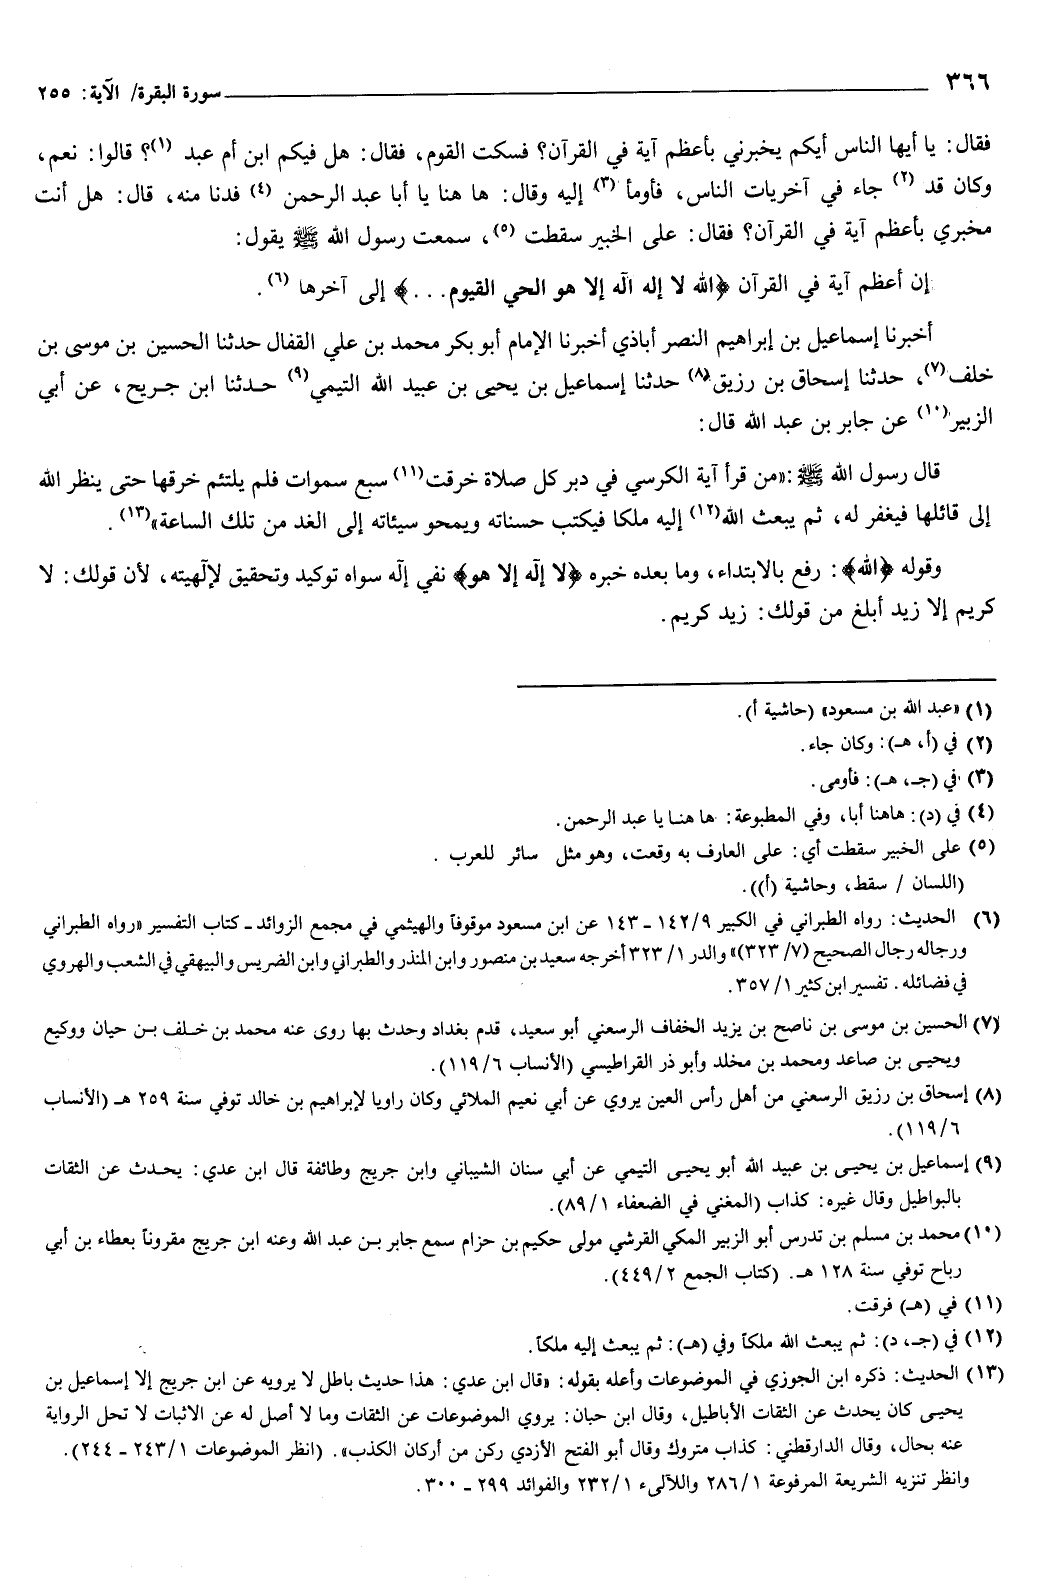 ٣٦٦ سورة البقرة/ الآية: ٢٥٥
فقال: يا أيها الناس أيكم يخبرني بأعظم آية في القرآن؟ فسكت القوم، فقال: هل فيكم ابن أم عبد (١)؟ قالوا: نعم،
وكان قد (٢) جاء في آخريات الناس، فأومأ (٣) إليه وقال: ها هنا يا أبا عبد الرحمن (٤) فدنا منه، قال: هل أنت
مخبري بأعظم آية في القرآن؟ فقال: على الخبير سقطت (٥)، سمعت رسول الله ﷺ يقول:
إن أعظم آية في القرآن ﴿الله لا إله الَه إلا هو الحي القيوم...﴾ إلى آخرها (٦).
أخبرنا إسماعيل بن إبراهيم النصر أباذي أخبرنا الإمام أبو بكر محمد بن علي القفال حدثنا الحسين بن موسى بن
خلف(٧)، حدثنا إسحاق بن رزيق(٨) حدثنا إسماعيل بن يحيى بن عبيد الله التيمي(٩) حدثنا ابن جريح، عن أبي
الزبير(١٠) عن جابر بن عبد الله قال:
قال رسول الله ﷺ:«من قرأ آية الكرسي في دبر كل صلاة خرقت(١١) سبع سموات فلم يلتئم خرقها حتى ينظر الله
إلى قائلها فيغفر له، ثم يبعث الله(١٢) إليه ملكا فيكتب حسناته ويمحو سيئاته إلى الغد من تلك الساعة»(١٣).
وقوله ﴿الله﴾: رفع بالابتداء، وما بعده خبره ﴿لا إلَه إلا هو﴾ نفي إلَه سواه توكيد وتحقيق لإلَهيته، لأن قولك: لا
كريم إلا زيد أبلغ من قولك: زيد كريم.
(١) «عبد الله بن مسعود» (حاشية أ).
(٢) في (أ، هـ): وكان جاء.
(٣) في (جـ، هـ): فأومى.
(٤) في (د): هاهنا أبا، وفي المطبوعة: ها هنا يا عبد الرحمن.
(٥) على الخبير سقطت أي: على العارف به وقعت، وهو مثل سائر للعرب.
(اللسان / سقط، وحاشية (أ)).
(٦) الحديث: رواه الطبراني في الكبير ٩/ ١٤٢ - ١٤٣ عن ابن مسعود موقوفاً والهيثمي في مجمع الزوائد - كتاب التفسير «رواه الطبراني
ورجاله رجال الصحيح (٧/ ٣٢٣)» والدر ١/ ٣٢٣ أخرجه سعيد بن منصور وابن المنذر والطبراني وابن الضريس والبيهقي في الشعب والهروي
في فضائله. تفسير ابن كثير ١/ ٣٥٧.
(٧) الحسين بن موسى بن ناصح بن يزيد الخفاف الرسعني أبو سعيد، قدم بغداد وحدث بها روى عنه محمد بن خلف بن حيان ووكيع
ويحيى بن صاعد ومحمد بن مخلد وأبو ذر القراطيسي (الأنساب ٦/ ١١٩).
(٨) إسحاق بن رزيق الرسعني من أهل رأس العين يروي عن أبي نعيم الملائي وكان راويا لإبراهيم بن خالد توفي سنة ٢٥٩ هـ (الأنساب
٦/ ١١٩).
(٩) إسماعيل بن يحيى بن عبيد الله أبو يحيى التيمي عن أبي سنان الشيباني وابن جريج وطائفة قال ابن عدي: يحدث عن الثقات
بالبواطيل وقال غيره: كذاب (المغني في الضعفاء ١/ ٨٩).
(١٠) محمد بن مسلم بن تدرس أبو الزبير المكي القرشي مولى حكيم بن حزام سمع جابر بن عبد الله وعنه ابن جريج مقروناً بعطاء بن أبي
رباح توفي سنة ١٢٨ هـ. (كتاب الجمع ٢/ ٤٤٩).
(١١) في (هـ) فرقت.
(١٢) في (جـ، د): ثم يبعث الله ملكاً وفي (هـ): ثم يبعث إليه ملكاً.
(١٣) الحديث: ذكره ابن الجوزي في الموضوعات وأعله بقوله: «قال ابن عدي: هذا حديث باطل لا يرويه عن ابن جريج إلا إسماعيل بن
يحيى كان يحدث عن الثقات الأباطيل، وقال ابن حبان: يروي الموضوعات عن الثقات وما لا أصل له عن الاثبات لا تحل الرواية
عنه بحال، وقال الدارقطني: كذاب متروك وقال أبو الفتح الأزدي ركن من أركان الكذب». (انظر الموضوعات ١/ ٢٤٣ - ٢٤٤).
وانظر تنزيه الشريعة المرفوعة ١/ ٢٨٦ واللآلىء ١/ ٢٣٢ والفوائد ٢٩٩ - ٣٠٠.